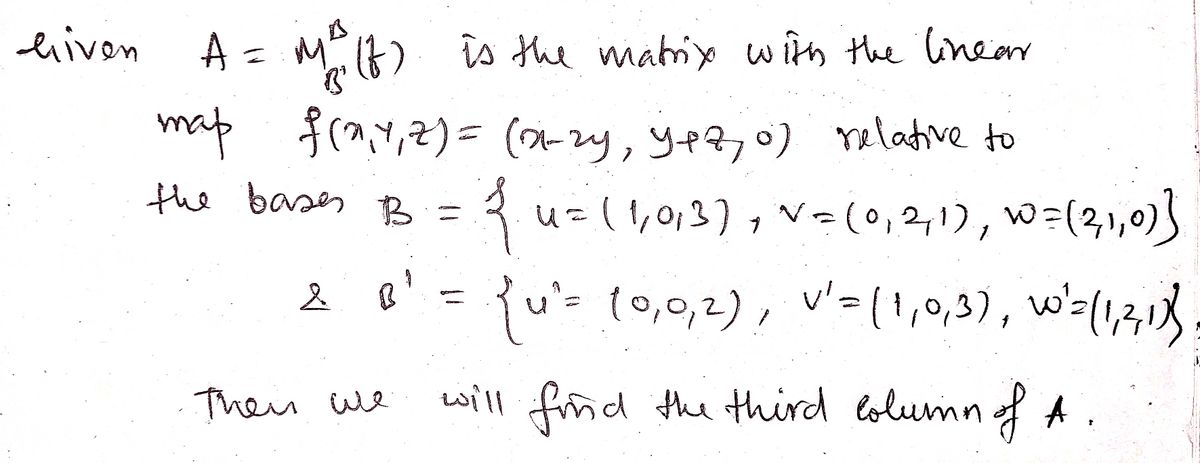 Given A = M^B_B'(f) is the matrix with the linear
map f(x,y,z) = (x-2y, y+z, 0) relative to
the bases B = { u=(1,0,3), v=(0,2,1), w=(2,1,0)}
& B' = {u'=(0,0,2), v'=(1,0,3), w'=(1,2,1)}.
Then we will find the third column of A.